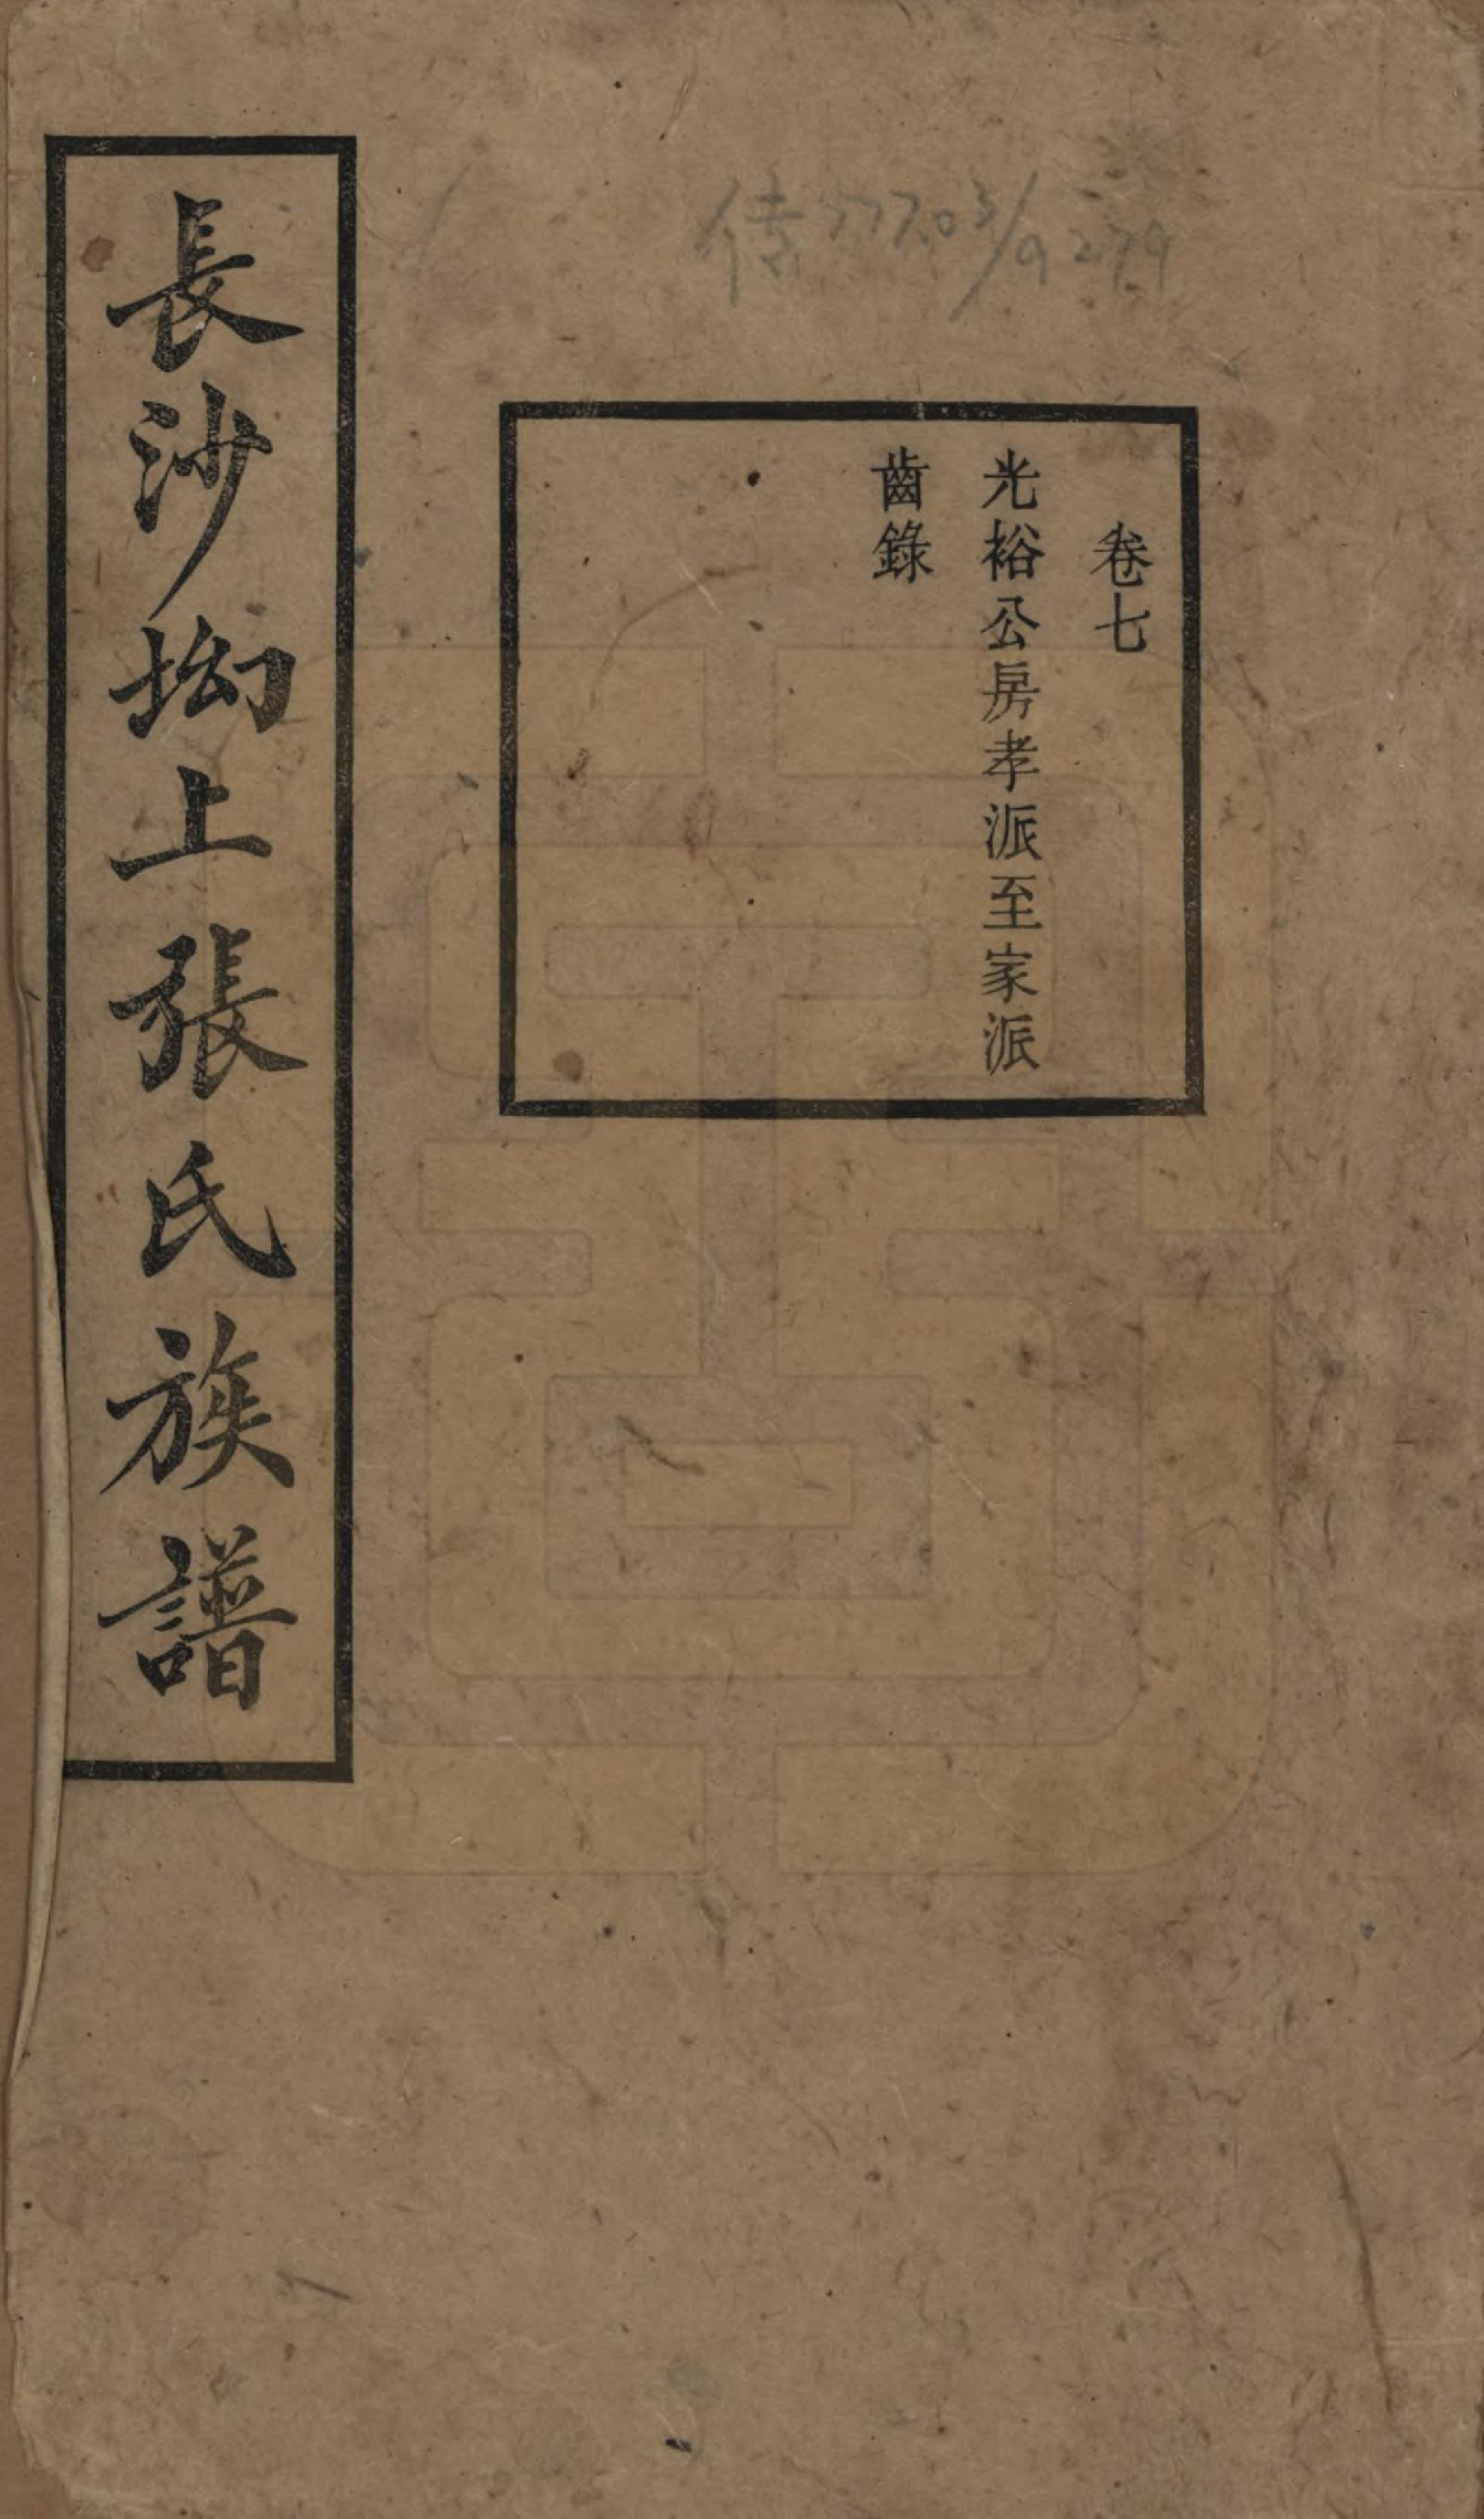 傳777.03/9279
卷七
光裕公房孝派至家派
齒錄
長沙㘭上張氏族譜